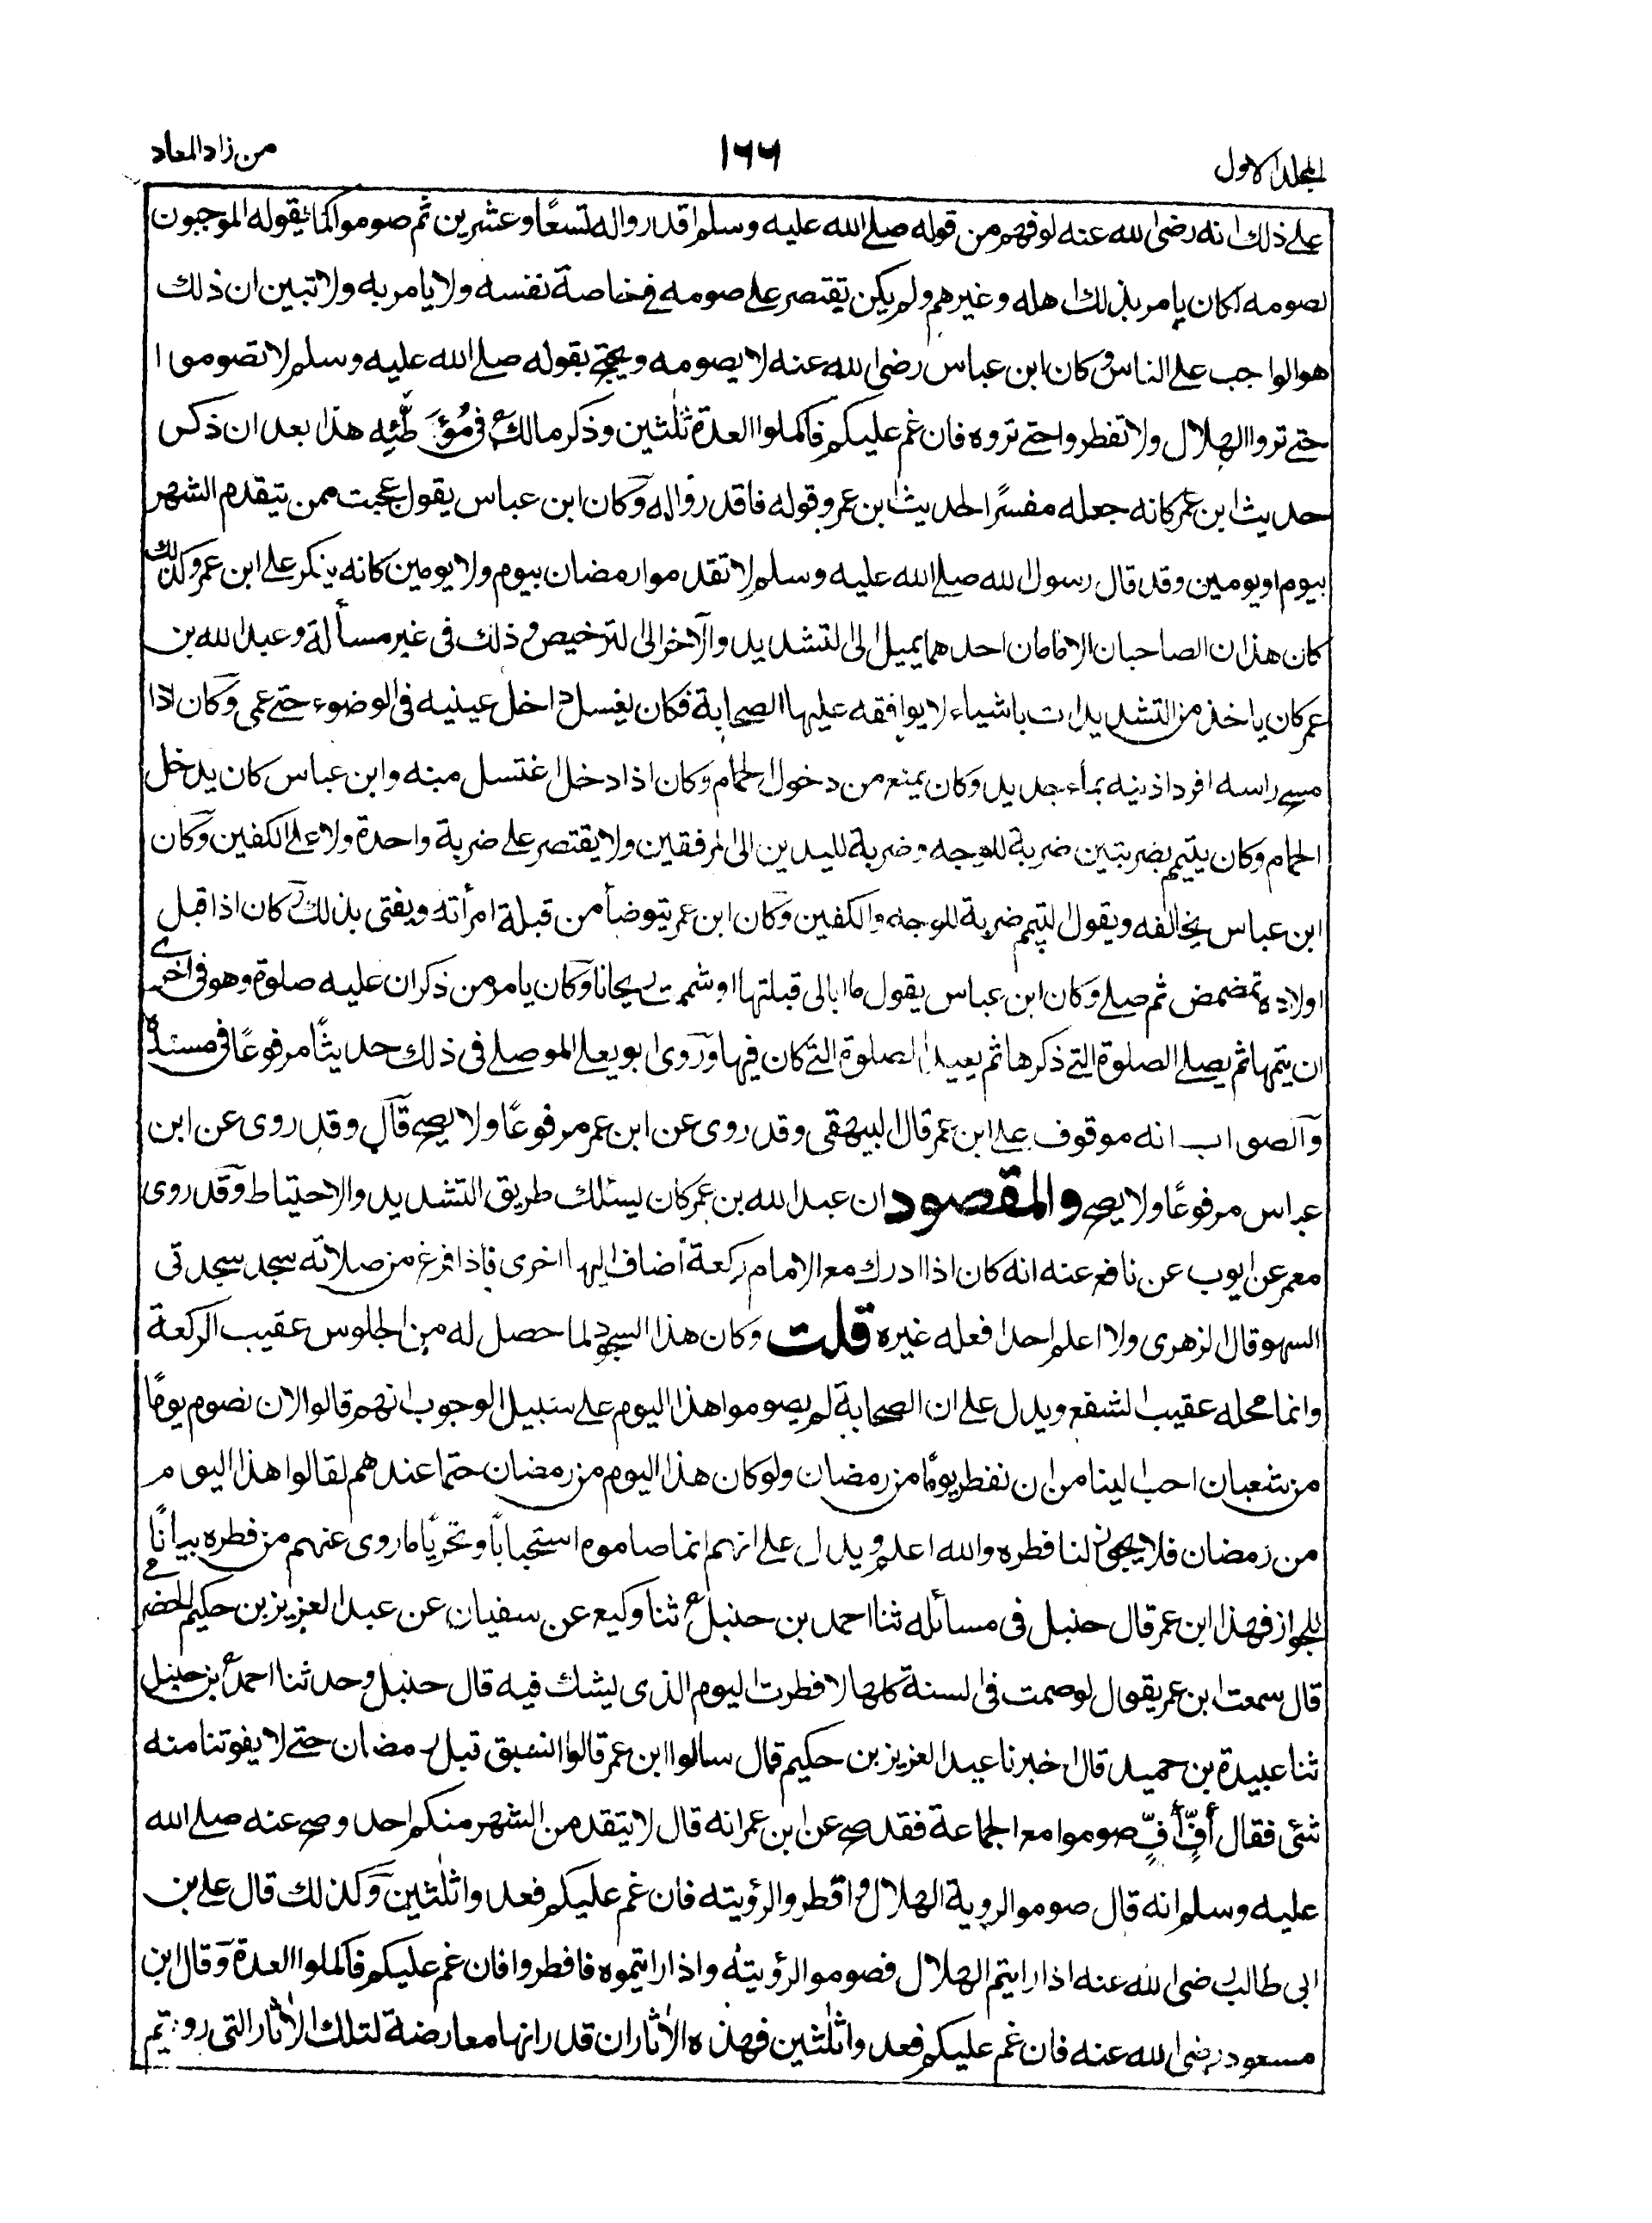 المجلد الاول
١٦٦
من زاد المعاد
علے ذلك انه رضى الله عنه لوفهم من قوله صلے الله عليه وسلم اقدروا له تسعًا وعشرين ثم صوموا كما يقوله الموجبون
لصومه لكان يامر بذلك اهله وغيرهم ولم يكن يقتصر علے صومه فے خاصة نفسه ولا يامر به ولا تبين ان ذلك
هو الواجب علے الناس وكان ابن عباس رضى الله عنه لا يصومه ويحتج بقوله صلے الله عليه وسلم لا تصوموا
حتے تروا الهلال ولا تفطروا حتے تروه فان غم عليكم فاكملوا العدة ثلٰثين وذكر مالك فى مؤطئه هذا بعد ان ذكر
حديث ابن عمر كانه جعله مفسرًا لحديث ابن عمر وقوله فاقدروا له وكان ابن عباس يقول عجبت ممن يتقدم الشهر
بيوم او يومين وقد قال رسول الله صلے الله عليه وسلم لا تقدموا رمضان بيوم ولا يومين كانه ينكر علے ابن عمر وكذلك
كان هذان الصاحبان الامامان احدهما يميل الى التشديد والآخر الى الترخيص وذلك فى غير مسألة وعبد الله بن
عمر كان ياخذ من التشديدات باشياء لا يوافقه عليها الصحابة فكان يغسل داخل عينيه فى الوضوء حتے عمى وكان اذا
مسح راسه افرد اذنيه بماء جديد وكان يمنع من دخول الحمام وكان اذا دخل اغتسل منه وابن عباس كان يدخل
الحمام وكان يتيمم بضربتين ضربة للوجه وضربة لليدين الى المرفقين ولا يقتصر علے ضربة واحدة ولا علے الكفين وكان
ابن عباس يخالفه ويقول التيمم ضربة للوجه والكفين وكان ابن عمر يتوضأ من قبلة امرأته ويفتى بذلك وكان اذا قبل
اولاده تمضمض ثم صلے وكان ابن عباس يقول ما ابالى قبلتها او شممت ريحانا وكان يامر من ذكر ان عليه صلوة وهو فى اخرى
ان يتمها ثم يصلے الصلوة التے ذكرها ثم يعيد الصلوة التے كان فيها وروى ابو يعلے الموصلے فى ذلك حديثًا مرفوعًا فى مسنده
والصواب انه موقوف علے ابن عمر قال البيهقى وقد روى عن ابن عمر مرفوعًا ولا يصح قال وقد روى عن ابن
عباس مرفوعًا ولا يصح والمقصود ان عبد الله بن عمر كان يسلك طريق التشديد والاحتياط وقد روى
معمر عن ايوب عن نافع عنه انه كان اذا ادرك مع الامام ركعة أضاف اليها اخرى فاذا فرغ من صلاته سجد سجدتى
السهو قال الزهرى ولا اعلم احدا فعله غيره قلت وكان هذا السجود لما حصل له من الجلوس عقيب الركعة
وانما محله عقيب الشفع ويدل علے ان الصحابة لم يصوموا هذا اليوم علے سبيل الوجوب انهم قالوا لان نصوم يومًا
من شعبان احب الينا من ان نفطر يومًا من رمضان ولو كان هذا اليوم من رمضان حتما عندهم لقالوا هذا اليوم
من رمضان فلا يجوز لنا فطره والله اعلم ويدل علے انهم انما صاموه استحبابًا وتحريًا ما روى عنهم من فطره بيانًا
للجواز فهذا ابن عمر قال حنبل فى مسائله ثنا احمد بن حنبل ثنا وكيع عن سفيان عن عبد العزيز بن حكيم الحضرمى
قال سمعت ابن عمر يقول لو صمت فى السنة كلها لافطرت اليوم الذى يشك فيه قال حنبل وحدثنا احمد بن حنبل
ثنا عبيدة بن حميد قال اخبرنا عبد العزيز بن حكيم قال سالوا ابن عمر قالوا انسبق قبل رمضان حتے لا يفوتنا منه
شئى فقال أُفٍّ أُفٍّ صوموا مع الجماعة فقد صح عن ابن عمر انه قال لا يتقدمن الشهر منكم احد وصح عنه صلے الله
عليه وسلم انه قال صوموا لروية الهلال وافطروا لرؤيته فان غم عليكم فعدوا ثلٰثين وكذلك قال علے بن
ابى طالب رضى الله عنه اذا رايتم الهلال فصوموا لرؤيته واذا رايتموه فافطروا فان غم عليكم فاكملوا العدة وقال ابن
مسعود رضى الله عنه فان غم عليكم فعدوا ثلٰثين فهذه الاٰثار ان قدر انها معارضة لتلك الاٰثار التى رويتم